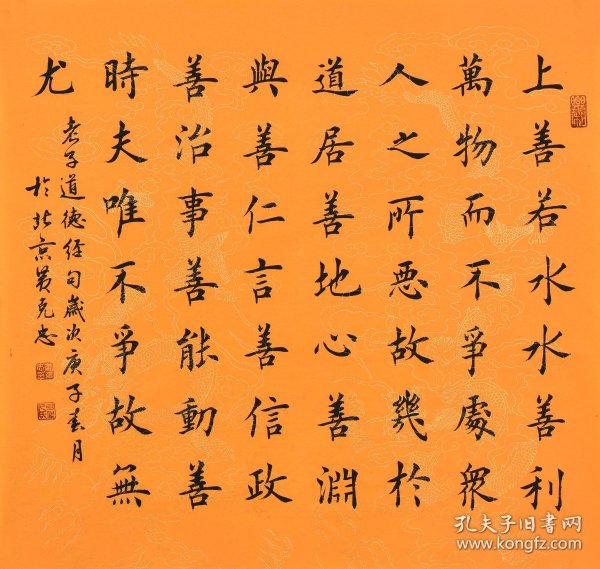 上善若水水善利
萬物而不爭處衆
人之所惡故幾於
道居善地心善淵
與善仁言善信政
善治事善能動善
時夫唯不爭故無
尤
老子道德經句歲次庚子春月
於北京吳克忠
孔夫子旧书网
www.kongfz.com